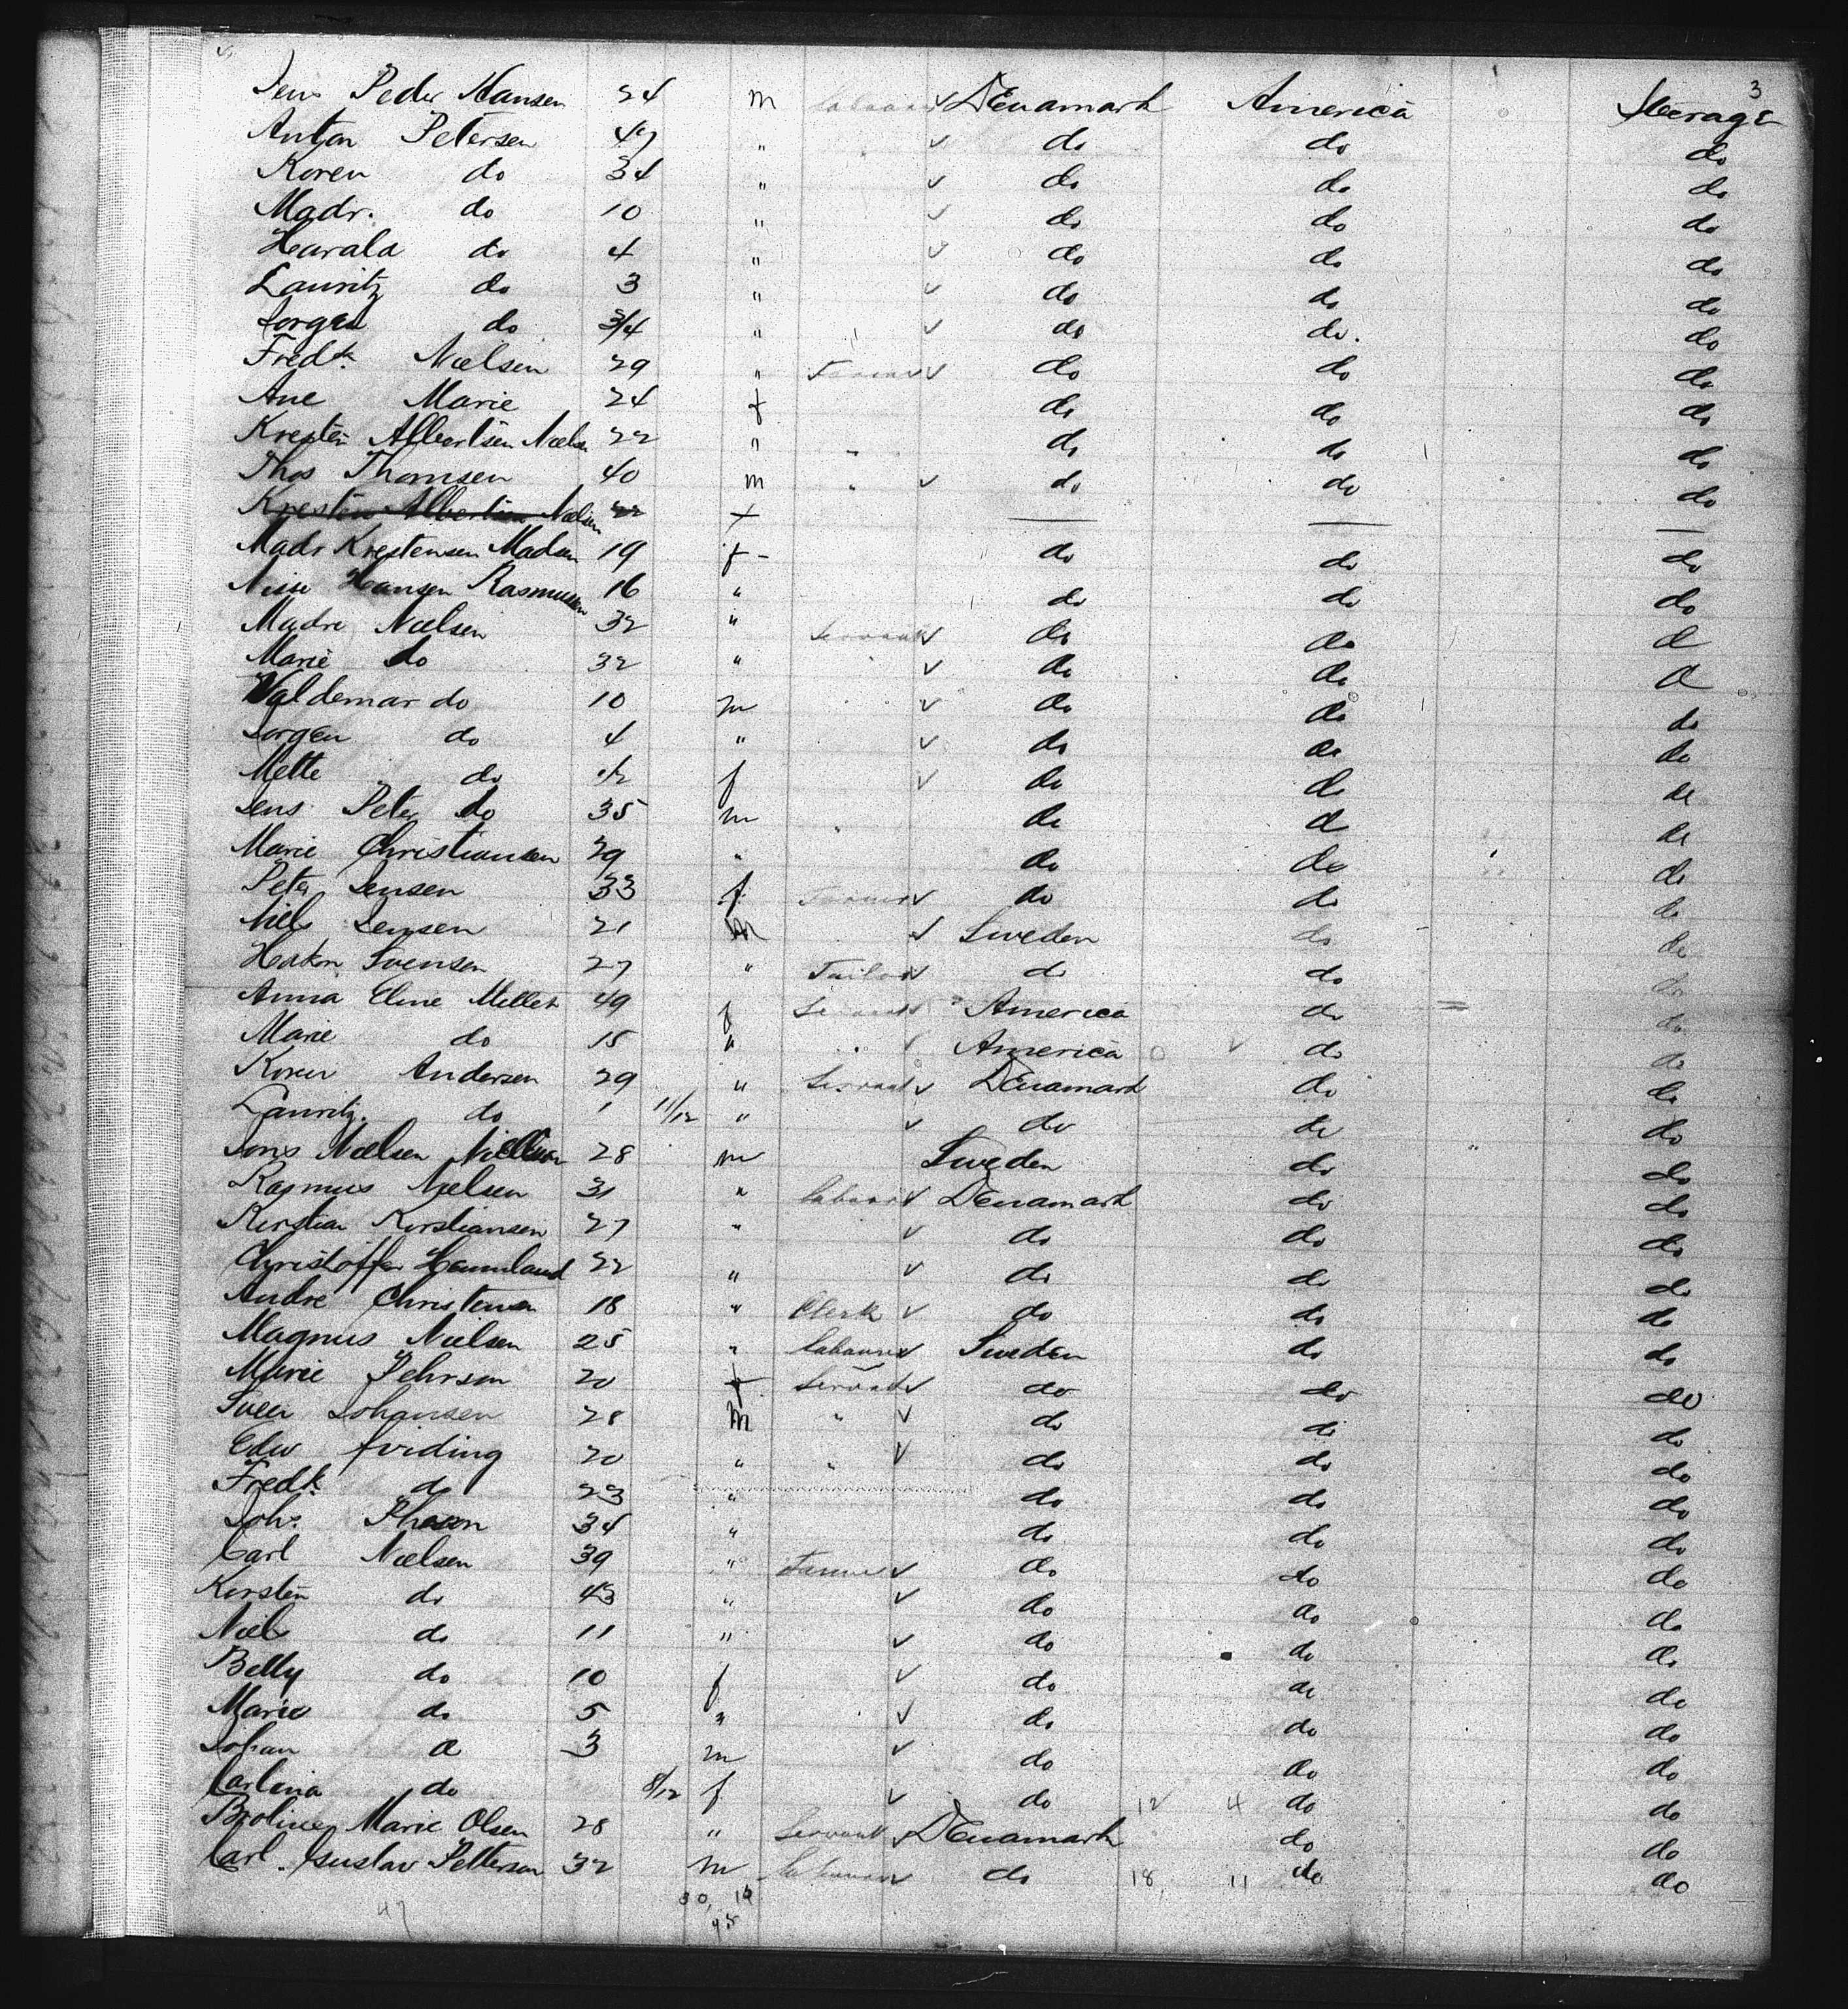 3
Jens Peder Hansen 24 m Labourer ✓ Denamark America Steerage
Anton Petersen 47 " ✓ do do do
Koren do 34 " ✓ do do do
Madr. do 10 " ✓ do do do
Harald do 4 " ✓ do do do
Lauritz do 3 " ✓ do do do
Jorgen do 3/4 " ✓ do do. do
Fredk. Nielsen 29 " Farmer ✓ do do do
Ane Marie 24 f do do do
Kresten Albertsen Nielsen 22 " " do do do
Thos Thomsen 40 m " ✓ do do do
Kresten Albertsen Nielsen 22 f — — —
Madr Krestensen Madsen 19 f - do do do
Nisse Hansen Rasmussen 16 " do do do
Madre Nielsen 32 " Servant ✓ do do do
Marie do 32 " ✓ do do do
Valdemar do 10 m ✓ do do do
Jorgen do 4 " ✓ do do do
Mette do 1/2 f ✓ do do do
Jens Peter do 35 m " do do do
Marie Christiansen 29 " do do do
Peter Jensen 33 f Farmer ✓ do do do
Niels Jensen 21 m ✓ Sweden do do
Hakon Svensen 27 " Tailor ✓ do do do
Anna Eline Meller 49 f Servant ✓ America do do
Marie do 15 " " ✓ America do do
Koren Andersen 29 " Servant ✓ Denamark do do
Lauritz. do 1 11/12 " ✓ do do do
Jons Nielsen 28 m Sweden do do
Rasmus Nielsen 31 " Labourer ✓ Denamark do do
Kirstian Kirstiansen 27 " ✓ do do do
Christoffer 22 " ✓ do do do
Andre Christensen 18 " Clerk ✓ do do do
Magnus Nielsen 25 " Labourer ✓ Sweden do do
Marie Pehrson 20 f Servant ✓ do do do
Sven Johansen 28 m " ✓ do do do
Edw 20 " " ✓ do do do
Fredk. do 23 " do do do
Joh. 34 " do do do
Carl Nielsen 39 " Farmer ✓ do do do
Kirsten do 43 " ✓ do do do
Niels do 11 " ✓ do do do
Betty do 10 f ✓ do do do
Marie do 5 " ✓ do do do
Johan do 3 m ✓ do do do
Carlina do 8/12 f ✓ do 12 4 do do
Marie Olsen 28 " Servant ✓ Denamark do do
Carl Gustav Petterson 32 m Labourer ✓ do 18, 11 do do
47